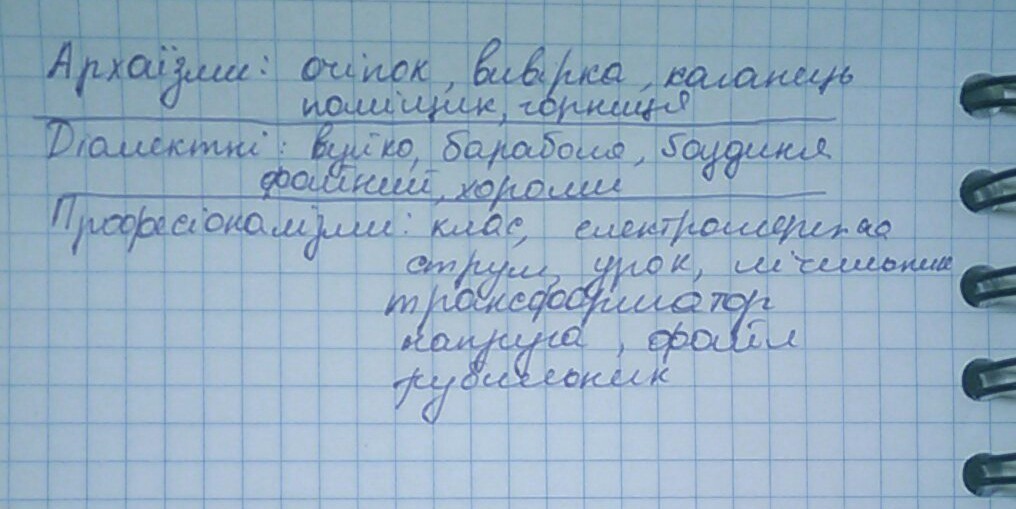 Архаїзми: очіпок, вивірка, каганець
поміщик, горниця
Діалектні: вуйко, бараболя, бгудиня
файний, хороми
Професіоналізми: клас, електромережа
струм, урок, лічильник
трансформатор
напруга, файл
рубильник